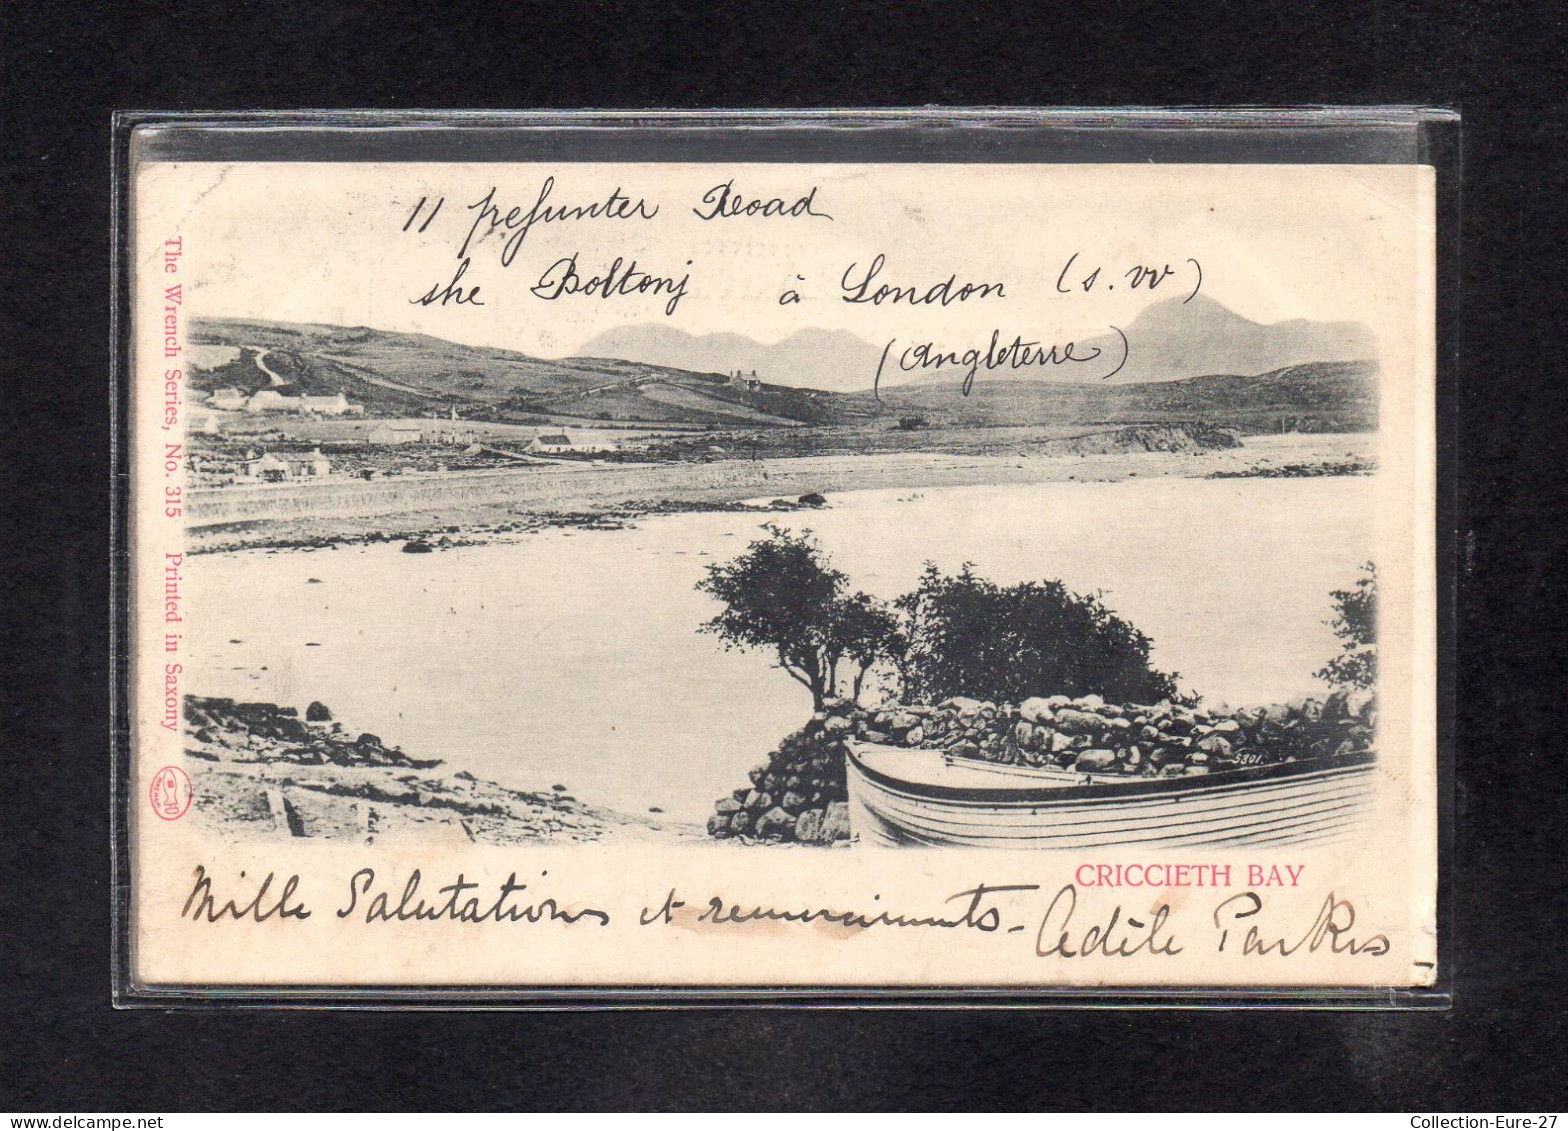 11 prefunter Road
she Boltonj à London (s. w)
(Angleterre)
The Wrench Series, No. 315 Printed in Saxony
5301.
CRICCIETH BAY
Mille Salutations et remerciments -
Adèle Parkes
www.delcampe.net
Collection-Eure-27